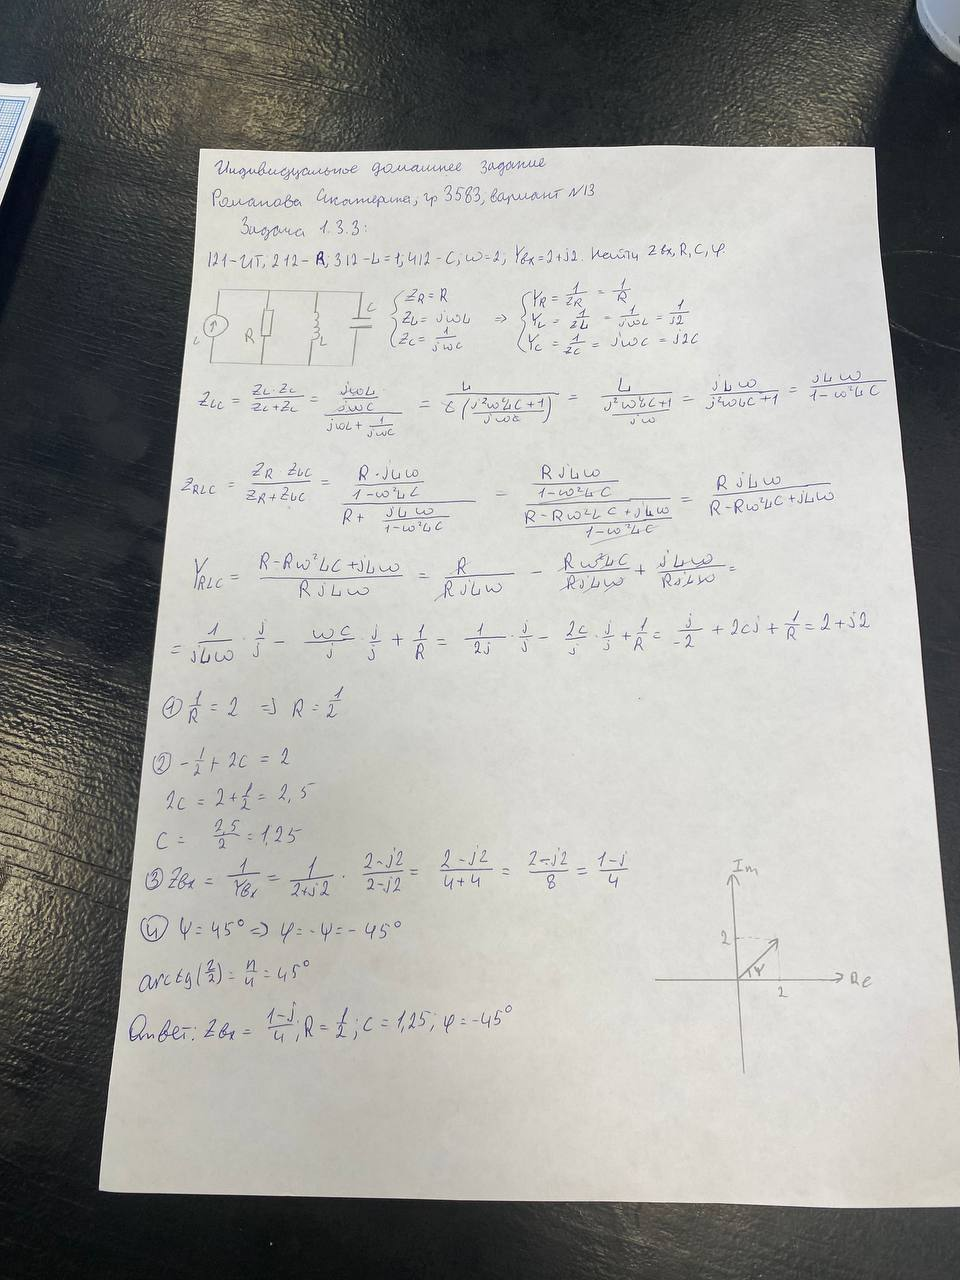 Индивидуальное домашнее задание
Романова Екатерина, гр 3583, вариант N13
Задача 1.3.3:
121-ИТ; 212-R; 312-L=1; 412-C; ω=2; Yвх=2+j2. Найти Zвх, R, C, φ.
i R L C
{ Z_R = R
Z_L = jωL
Z_C = 1/(jωC)
⇒ { Y_R = 1/Z_R = 1/R
Y_L = 1/Z_L = 1/(jωL) = 1/(j2)
Y_C = 1/Z_C = jωC = j2C
Z_LC = (Z_L · Z_L)/(Z_C + Z_L) = (jωL/(jωC))/(jωL + 1/(jωC)) = L/(C((j²ω²LC+1)/(jωC))) = L/((j²ω²LC+1)/(jω)) = jLω/(j²ω²LC+1) = jLω/(1-ω²LC)
Z_RLC = (Z_R · Z_LC)/(Z_R + Z_LC) = (R·jLω/(1-ω²LC))/(R + jLω/(1-ω²LC)) = (RjLω/(1-ω²LC))/((R-Rω²LC+jLω)/(1-ω²LC)) = RjLω/(R-Rω²LC+jLω)
Y_RLC = (R-Rω²LC+jLω)/(RjLω) = R/(RjLω) - Rω²LC/(RjLω) + jLω/(RjLω) =
= 1/(jLω) · j/j - ωC/j · j/j + 1/R = 1/(2j) · j/j - 2C/j · j/j + 1/R = j/(-2) + 2Cj + 1/R = 2+j2
① 1/R = 2 ⇒ R = 1/2
② -1/2 + 2C = 2
2C = 2 + 1/2 = 2,5
C = 2,5/2 = 1,25
③ Zвх = 1/Yвх = 1/(2+j2) · (2-j2)/(2-j2) = (2-j2)/(4+4) = (2-j2)/8 = (1-j)/4
④ Ψ = 45° ⇒ φ = -Ψ = -45°
arctg(2/2) = π/4 = 45°
Ответ: Zвх = (1-j)/4; R = 1/2; C = 1,25; φ = -45°
Im
2
Ψ
Re
2